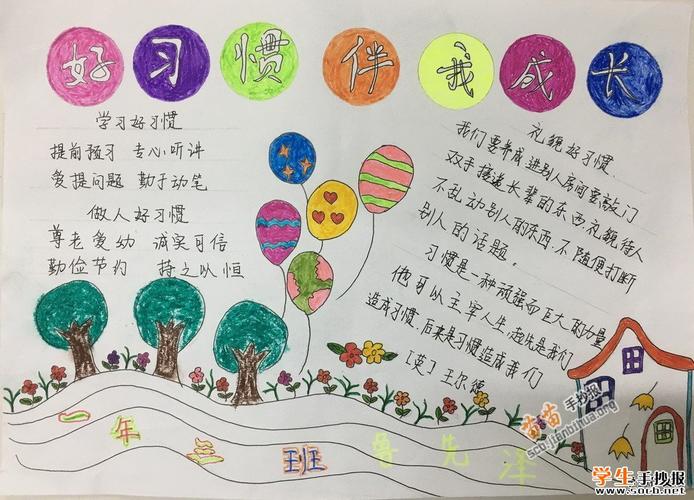 好习惯伴我成长
学习好习惯
提前预习 专心听讲
爱提问题 勤于动笔
做人好习惯
尊老爱幼 诚实可信
勤俭节约 持之以恒
礼貌好习惯
我们要养成进别人房间要敲门
双手接递长辈的东西.礼貌待人
不乱动别人的东西.不随便打断
别人的话题。
习惯是一种顽强而巨大的力量
他可以主宰人生,起先是我们
造成习惯.后来是习惯造成我们
[英]王尔德
一年三班 鲁先泽
苗苗手抄报
scb.jianbihua.org
学生手抄报
www.soch.net